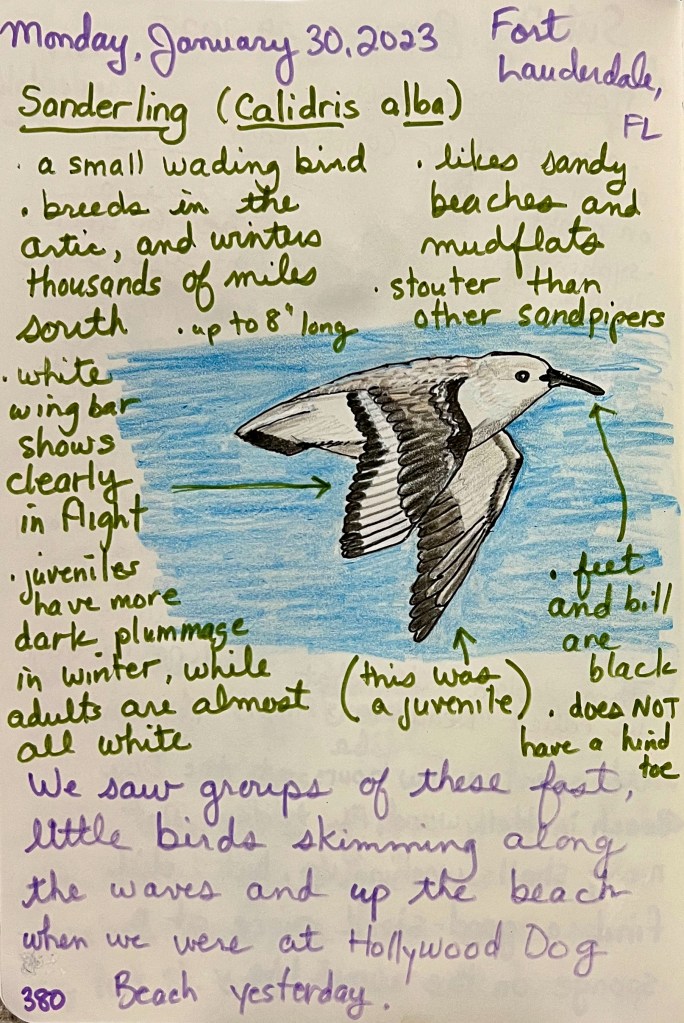 Monday, January 30, 2023
Fort
Lauderdale,
FL
Sanderling (Calidris alba)
· a small wading bird
· breeds in the
artic, and winters
thousands of miles
south
· up to 8" long
· likes sandy
beaches and
mudflats
· stouter than
other sandpipers
· white
wing bar
shows
clearly
in flight
· juveniles
have more
dark plummage
in winter, while
adults are almost
all white
(this was
a juvenile)
· feet
and bill
are
black
· does NOT
have a hind
toe
We saw groups of these fast,
little birds skimming along
the waves and up the beach
when we were at Hollywood Dog
Beach yesterday.
380